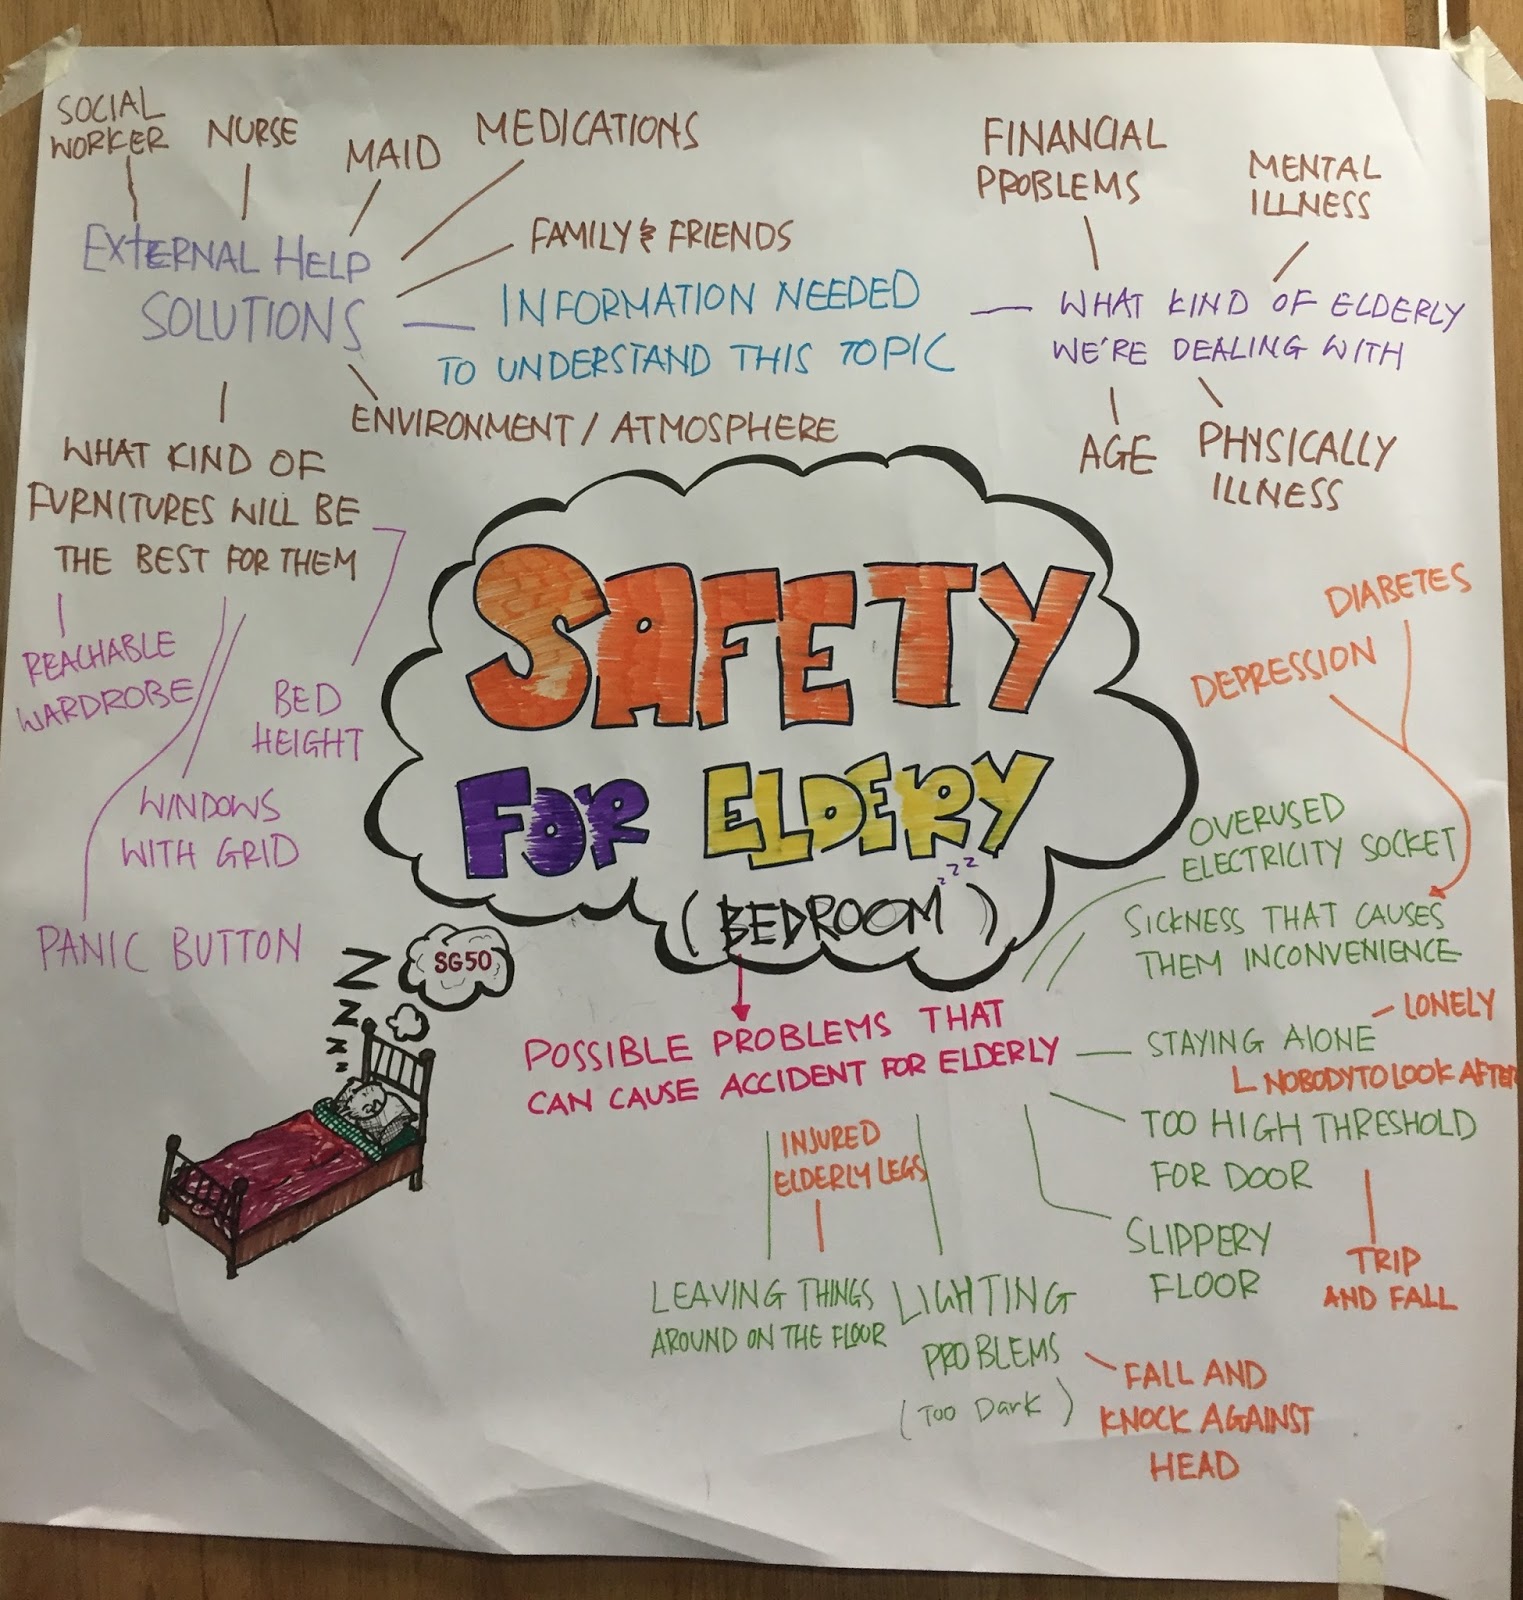 SOCIAL
WORKER
NURSE
MAID
MEDICATIONS
FAMILY & FRIENDS
EXTERNAL HELP
SOLUTIONS
INFORMATION NEEDED
TO UNDERSTAND THIS TOPIC
ENVIRONMENT / ATMOSPHERE
FINANCIAL
PROBLEMS
MENTAL
ILLNESS
WHAT KIND OF ELDERLY
WE'RE DEALING WITH
AGE
PHYSICALLY
ILLNESS
WHAT KIND OF
FURNITURES WILL BE
THE BEST FOR THEM
REACHABLE
WARDROBE
BED
HEIGHT
WINDOWS
WITH GRID
PANIC BUTTON
SAFETY
FOR ELDERY
(BEDROOM zzz)
SG50
ZZZZZ
POSSIBLE PROBLEMS THAT
CAN CAUSE ACCIDENT FOR ELDERLY
DIABETES
DEPRESSION
OVERUSED
ELECTRICITY SOCKET
SICKNESS THAT CAUSES
THEM INCONVENIENCE
LONELY
STAYING ALONE
NOBODY TO LOOK AFTER
TOO HIGH THRESHOLD
FOR DOOR
TRIP
AND FALL
SLIPPERY
FLOOR
INJURED
ELDERLY LEGS
LEAVING THINGS
AROUND ON THE FLOOR
LIGHTING
PROBLEMS
(TOO DARK)
FALL AND
KNOCK AGAINST
HEAD